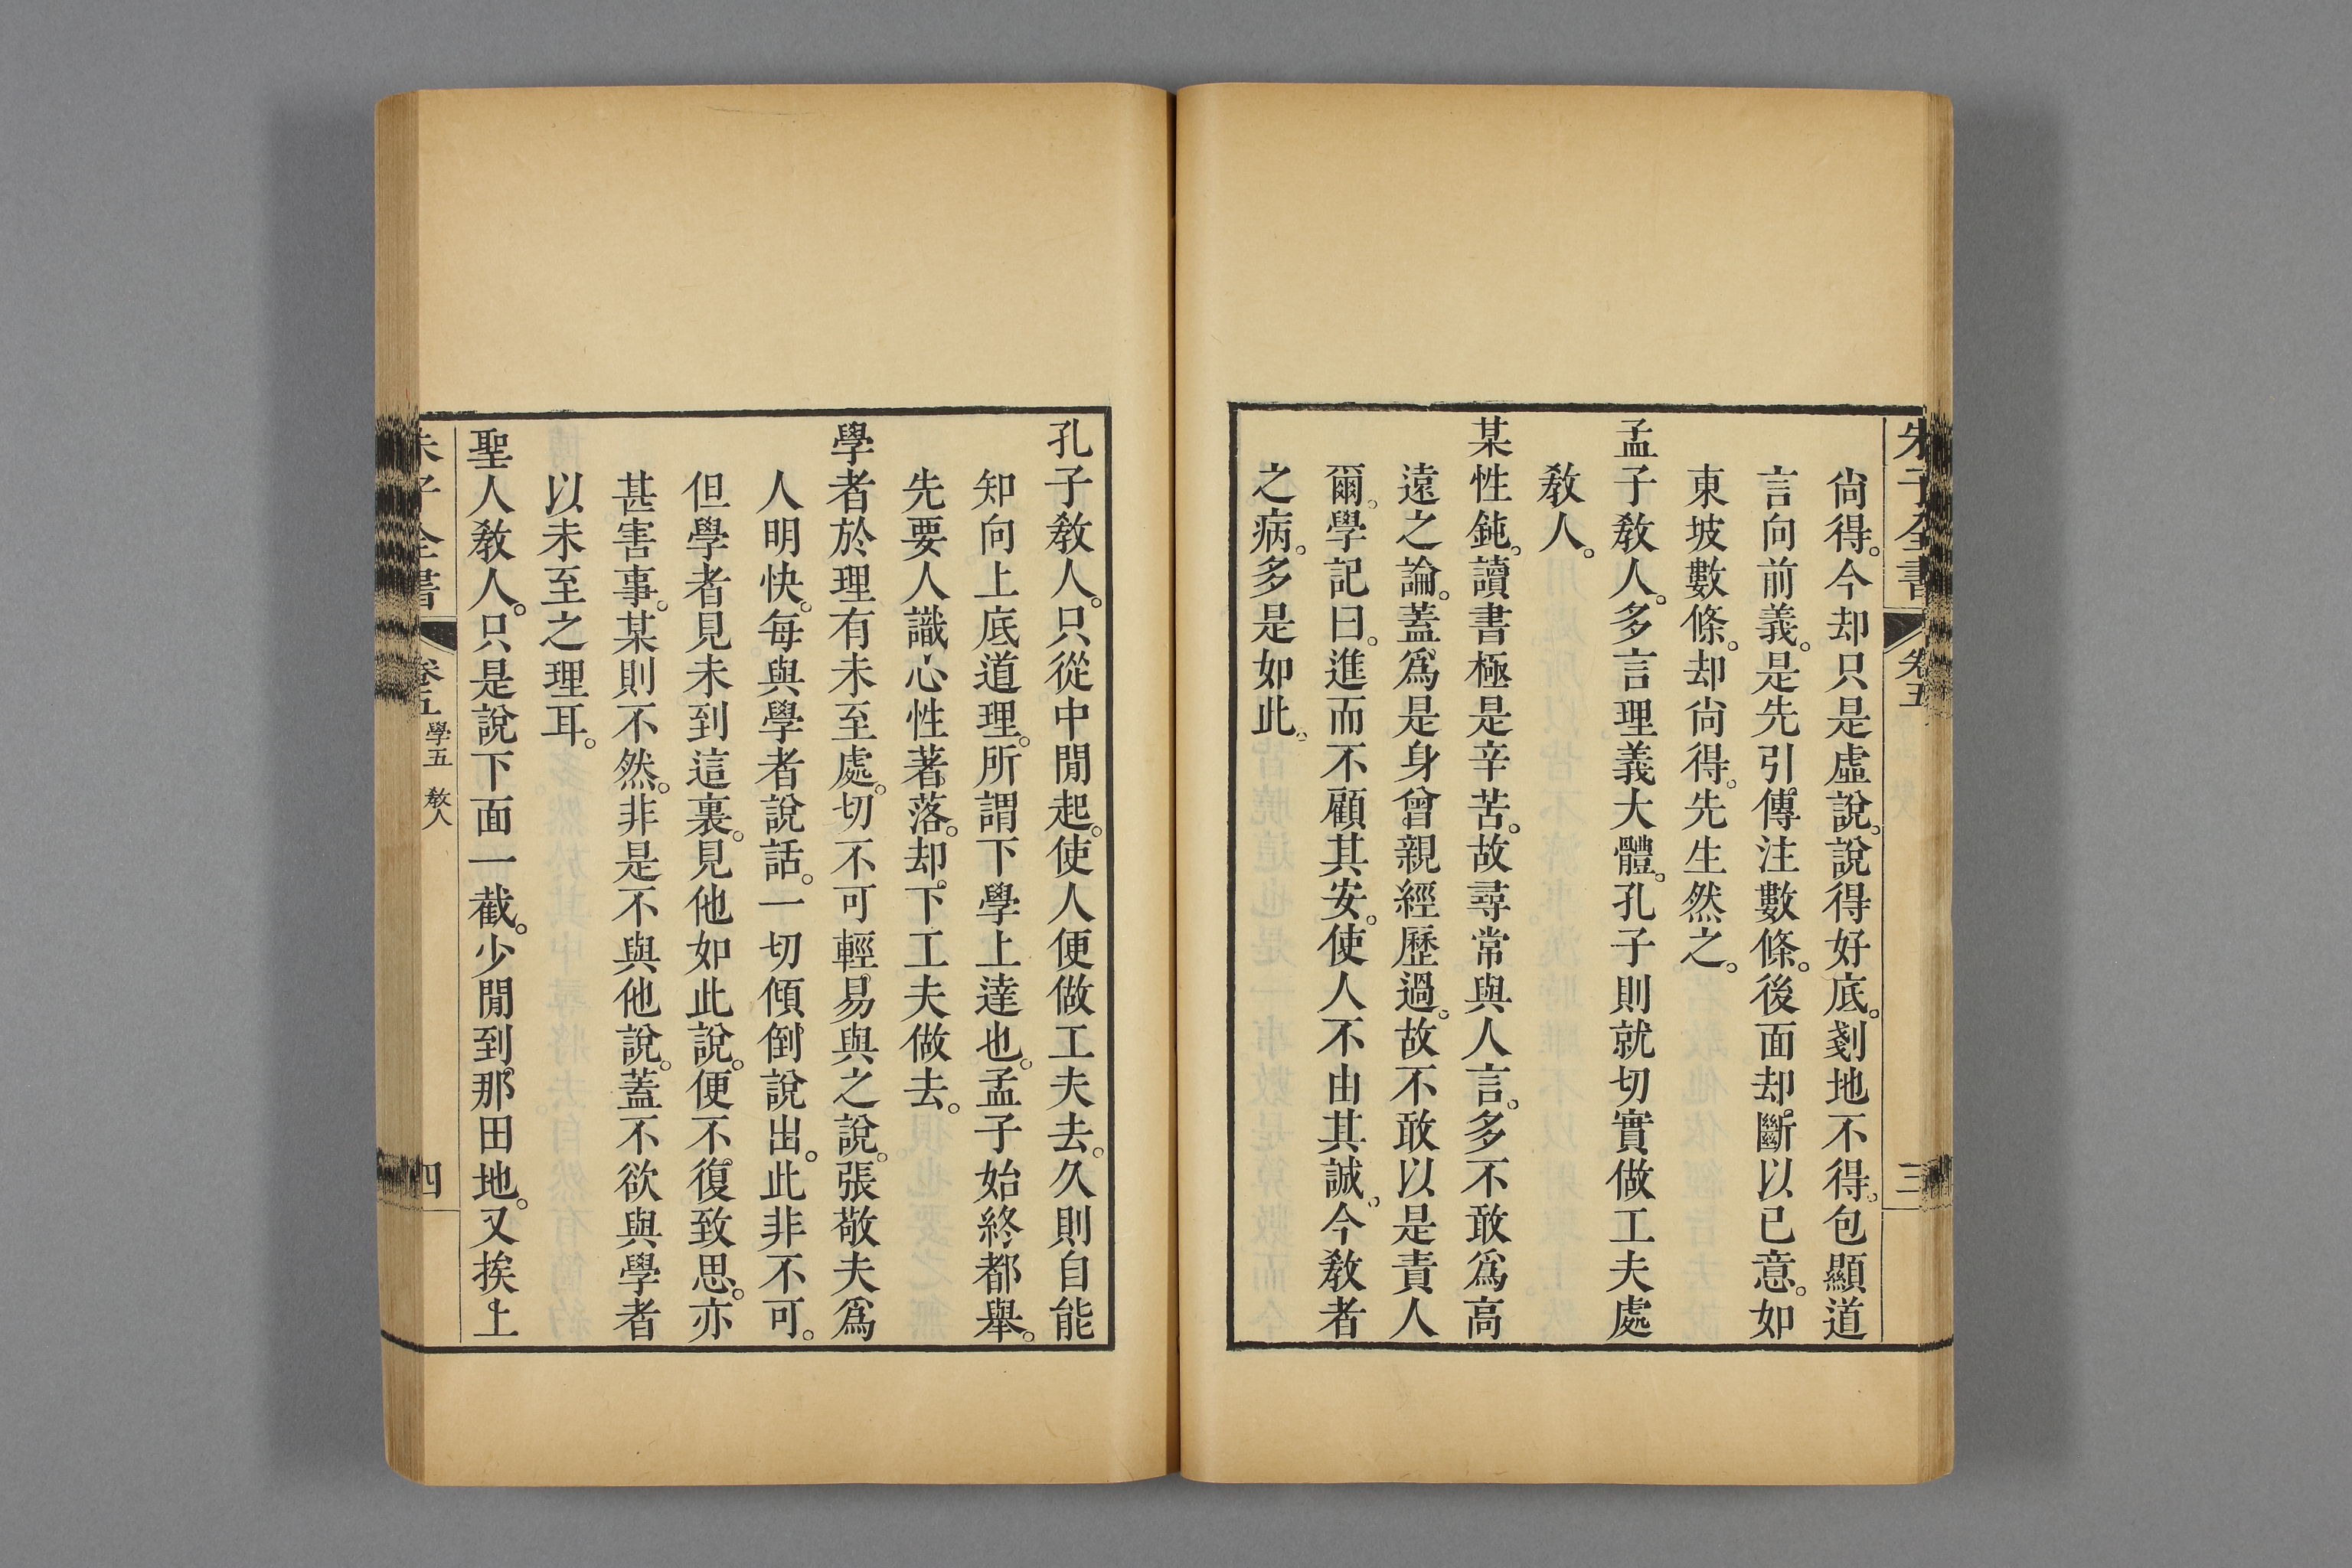 朱子全書 卷五 三
尙得。今却只是虛說。說得好底。剗地不得。包顯道
言向前義。是先引傳注數條。後面却斷以己意。如
東坡數條。却尙得。先生然之。
孟子敎人。多言理義大體。孔子則就切實做工夫處
敎人。
某性鈍。讀書極是辛苦。故尋常與人言。多不敢爲高
遠之論。蓋爲是身曾親經歷過。故不敢以是責人
爾。學記曰。進而不顧其安。使人不由其誠。今敎者
之病。多是如此。
孔子敎人。只從中閒起。使人便做工夫去。久則自能
知向上底道理。所謂下學上達也。孟子始終都舉。
先要人識心性著落。却下工夫做去。
學者於理有未至處。切不可輕易與之說。張敬夫爲
人明快。每與學者說話。一切傾倒說出。此非不可。
但學者見未到這裏。見他如此說。便不復致思。亦
甚害事。某則不然。非是不與他說。蓋不欲與學者
以未至之理耳。
聖人敎人。只是說下面一截。少閒到那田地。又挨上
朱子全書 卷五 學五 敎人 四